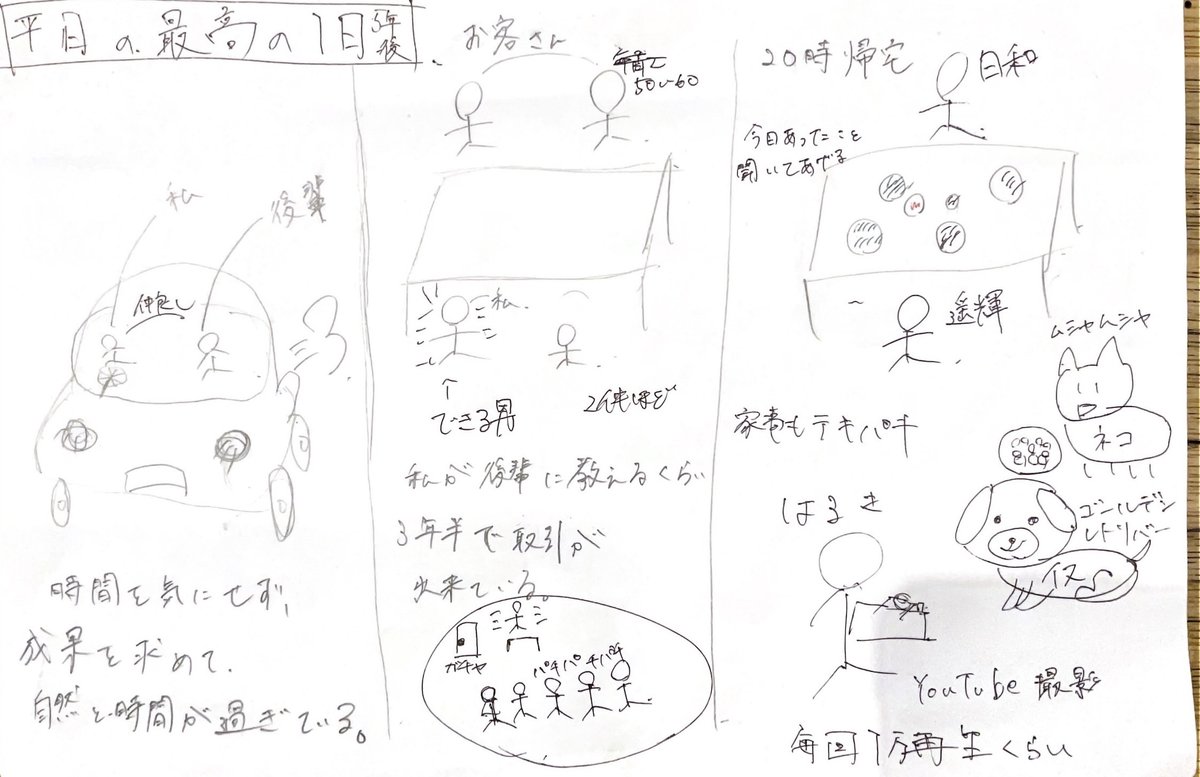 平日の最高の1日 3年後
私
後輩
仲良し
時間を気にせず、
成果を求めて、
自然と時間が過ぎている。
お客さん
50〜60
私
できる男
2件ほど
私が後輩に教えるくらい
3年半で取引が
出来ている。
ガチャ
パチパチパチ
20時帰宅
日和
今日あったことを
聞いてあげる
遥輝
ムシャムシャ
ネコ
家事もテキパキ
ゴールデン
レトリバー
イヌ
はるき
YouTube 撮影
毎回1万再生くらい